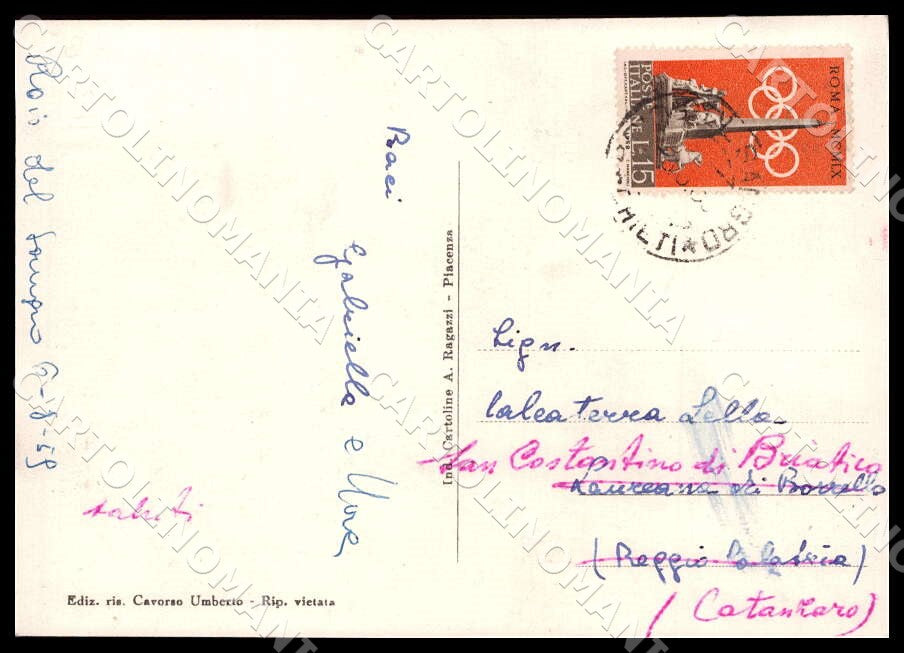 Roio del Sangro 9-8-59
Baci
Gabriella e
saluti
Ediz. ris. Cavorso Umberto - Rip. vietata
Ind. Cartoline A. Ragazzi - Piacenza
ROMA MCMLX
POSTE ITALIANE L. 15
Sign.
Calcaterra Lella
San Costantino di Briatico
Laureana di Borrello
(Reggio Calabria)
(Catanzaro)
CARTOLINOMANIA